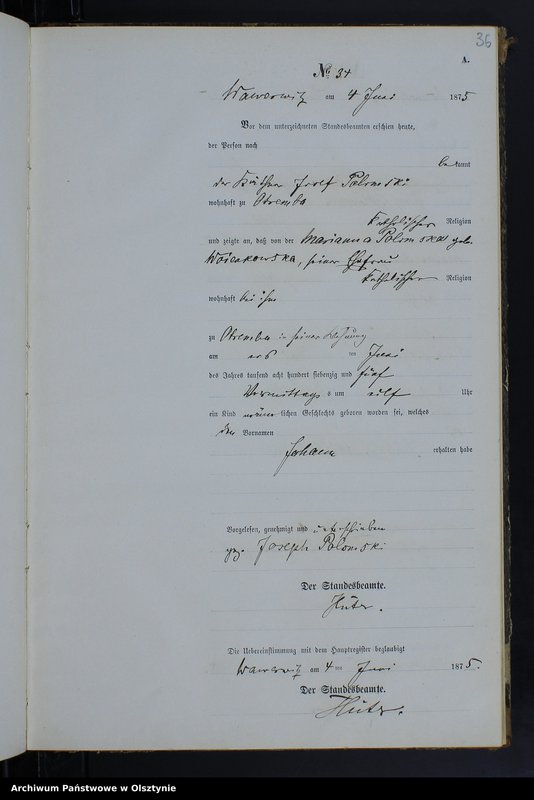 36
A.
№ 34
Wawerwitz am 4 Juni 1875
Vor dem unterzeichneten Standesbeamten erschien heute,
der Person nach
bekannt
der Käthner Josef Polomski
wohnhaft zu Otremba
katholischer Religion
und zeigte an, daß von der Marianna Polomska geb.
seiner Ehefrau
katholischer Religion
wohnhaft bei ihm
zu Otremba in seiner Wohnung
am Juni
des Jahres tausend acht hundert siebenzig und fünf
Vormittags um eilf Uhr
ein Kind männlichen Geschlechts geboren worden sei, welches
den Vornamen
Johann
erhalten habe
Vorgelesen, genehmigt und unterschrieben
gez. Joseph Polomski
Der Standesbeamte.
Die Uebereinstimmung mit dem Hauptregister beglaubigt
Wawerwitz am 4 ten Juni 1875.
Der Standesbeamte.
Archiwum Państwowe w Olsztynie